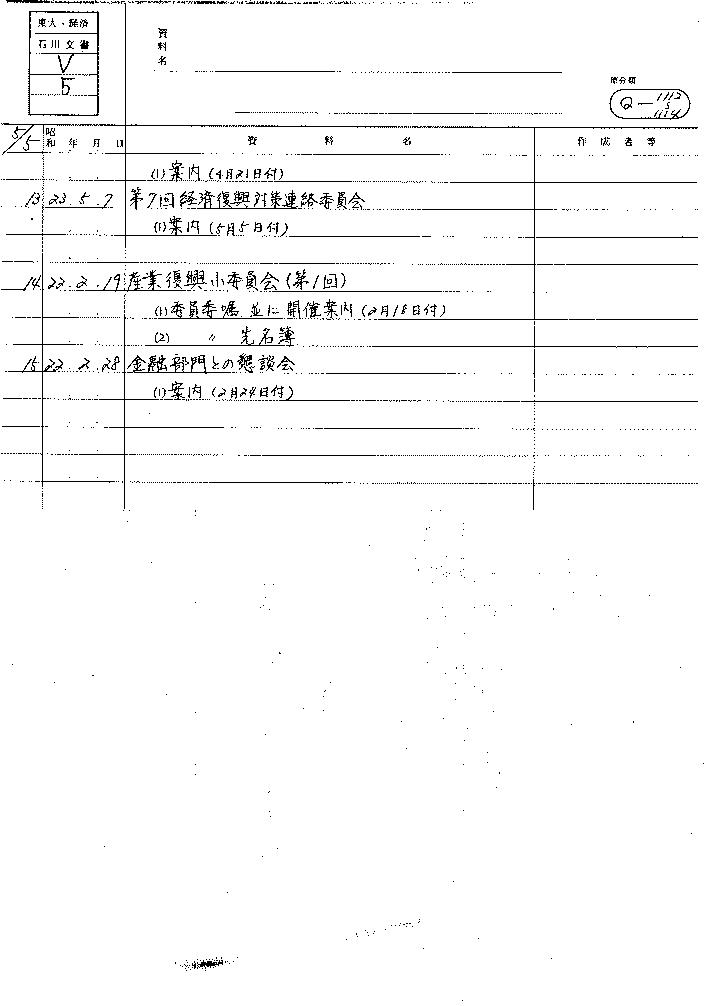 東大・経済
石川文書
V
5
資料名
原分類
Q-1112
5
1114
5/5 昭和 年 月 日 資料名 作成者等
(1) 案内 (4月21日付)
13 23.5.7 第7回経済復興対策連絡委員会
(1) 案内 (5月5日付)
14 22.2.19 産業復興小委員会 (第1回)
(1) 委員委嘱 並に 開催案内 (2月18日付)
(2) 〃 先名簿
15 22.2.28 金融部門との懇談会
(1) 案内 (2月24日付)